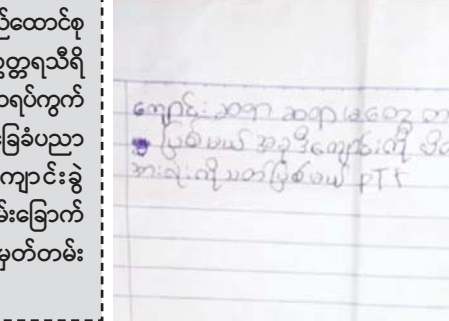 ည်ထောင်စု
ဥတ္တရသီရိ
ရပ်ကွက်
ခြေခံပညာ
ကျောင်းခွဲ
မ်းခြောက်
မှတ်တမ်း
ကျောင်းဆရာ ဆရာမတွေ
ဖြစ်မယ် အခုဒီကျောင်းကို
အားလုံးကိုသတ်ဖြစ်မယ် PTT